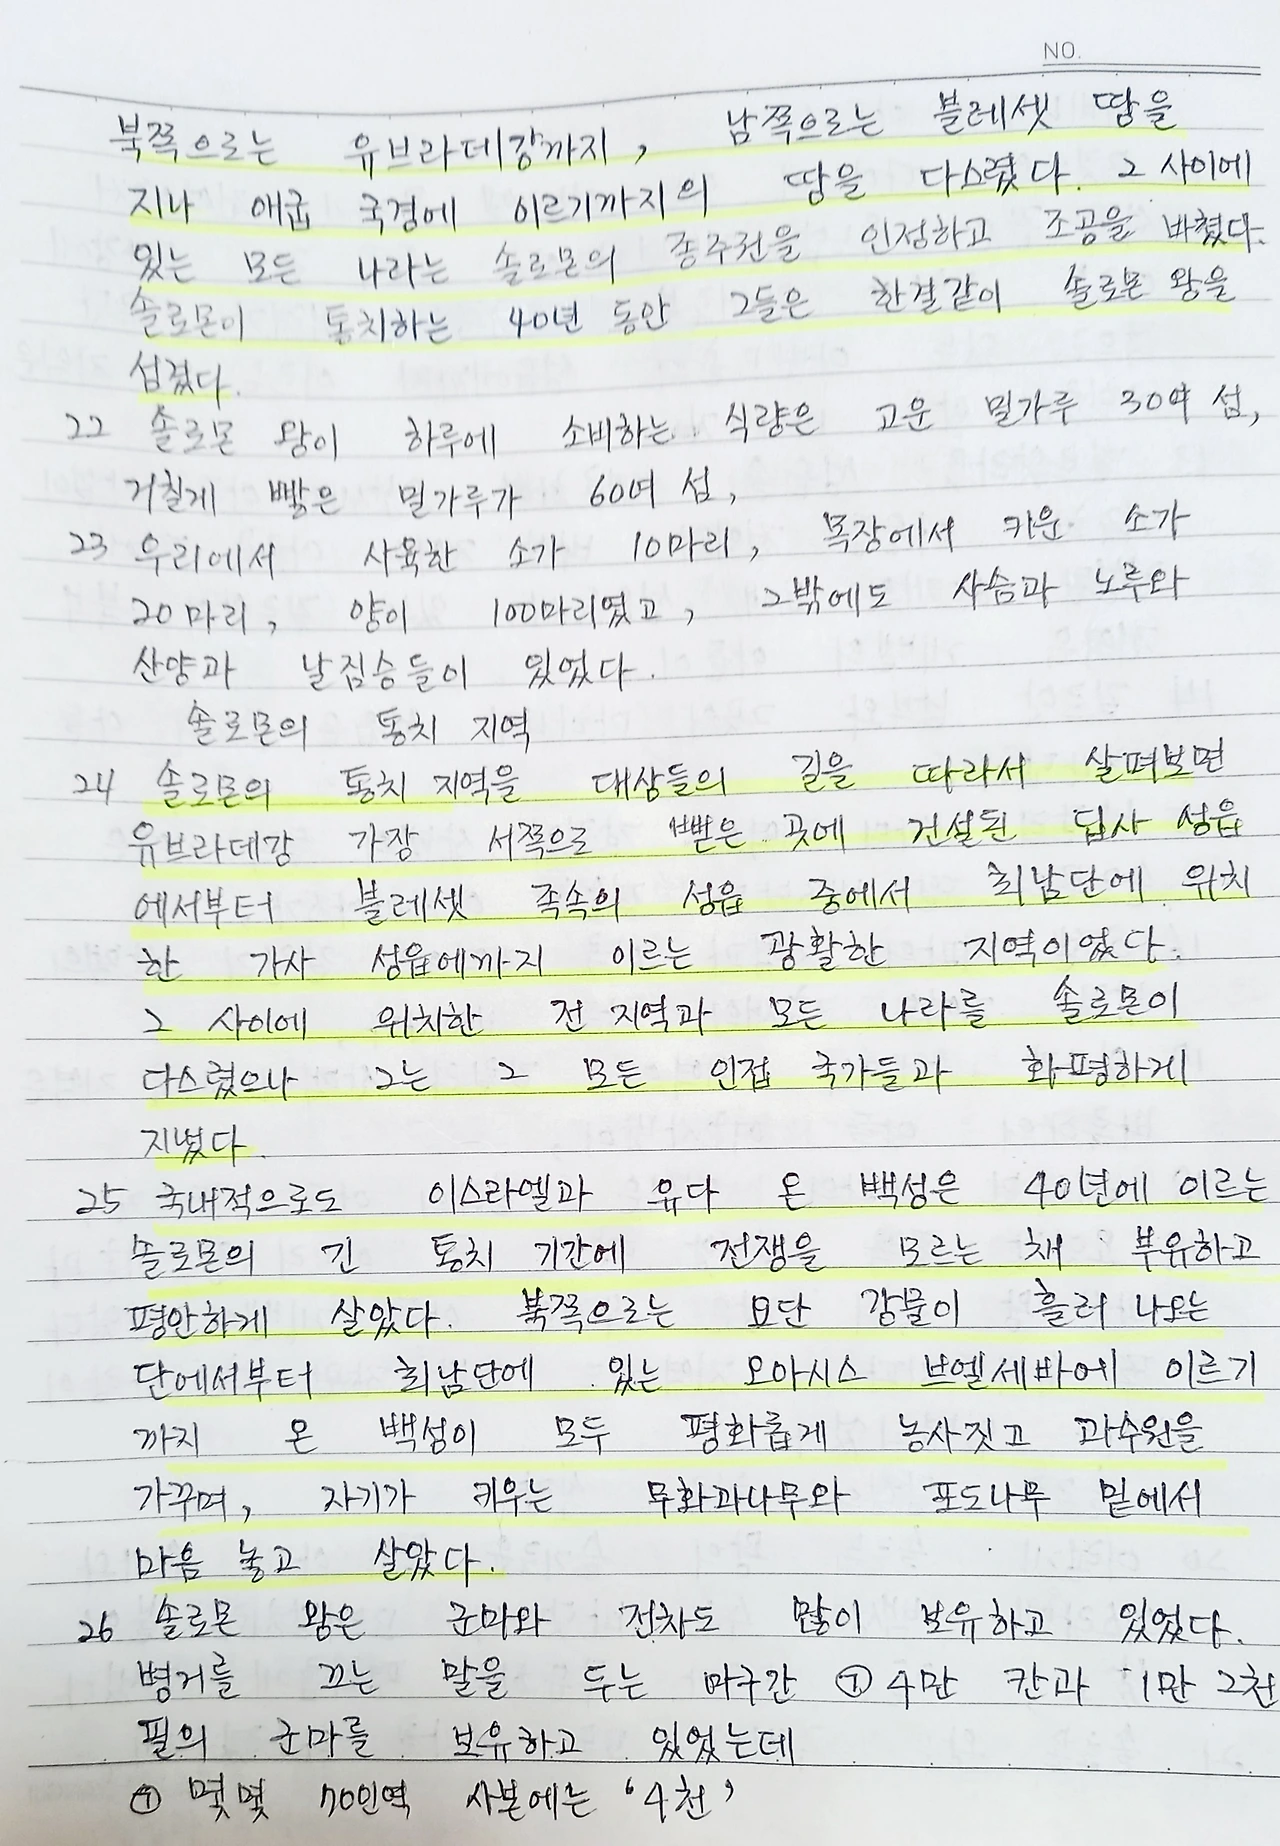 NO.
북쪽으로는 유브라데강까지, 남쪽으로는 블레셋 땅을
지나 애굽 국경에 이르기까지의 땅을 다스렸다. 그 사이에
있는 모든 나라는 솔로몬의 종주권을 인정하고 조공을 바쳤다.
솔로몬이 통치하는 40년 동안 그들은 한결같이 솔로몬 왕을
섬겼다.
22 솔로몬 왕이 하루에 소비하는 식량은 고운 밀가루 30여 섬,
거칠게 빻은 밀가루가 60여 섬,
23 우리에서 사육한 소가 10마리, 목장에서 키운 소가
20마리, 양이 100마리였고, 그밖에도 사슴과 노루와
산양과 날짐승들이 있었다.
솔로몬의 통치 지역
24 솔로몬의 통치 지역을 대상들의 길을 따라서 살펴보면
유브라데강 가장 서쪽으로 뻗은 곳에 건설된 딥사 성읍
에서부터 블레셋 족속의 성읍 중에서 최남단에 위치
한 가사 성읍에까지 이르는 광활한 지역이었다.
그 사이에 위치한 전 지역과 모든 나라를 솔로몬이
다스렸으나 그는 그 모든 인접 국가들과 화평하게
지냈다.
25 국내적으로도 이스라엘과 유다 온 백성은 40년에 이르는
솔로몬의 긴 통치 기간에 전쟁을 모르는 채 부유하고
평안하게 살았다. 북쪽으로는 요단 강물이 흘러 나오는
단에서부터 최남단에 있는 오아시스 브엘세바에 이르기
까지 온 백성이 모두 평화롭게 농사짓고 과수원을
가꾸며, 자기가 키우는 무화과나무와 포도나무 밑에서
마음 놓고 살았다.
26 솔로몬 왕은 군마와 전차도 많이 보유하고 있었다.
병거를 끄는 말을 두는 마구간 ㉠ 4만 칸과 1만 2천
필의 군마를 보유하고 있었는데
㉠ 몇몇 70인역 사본에는 '4천'